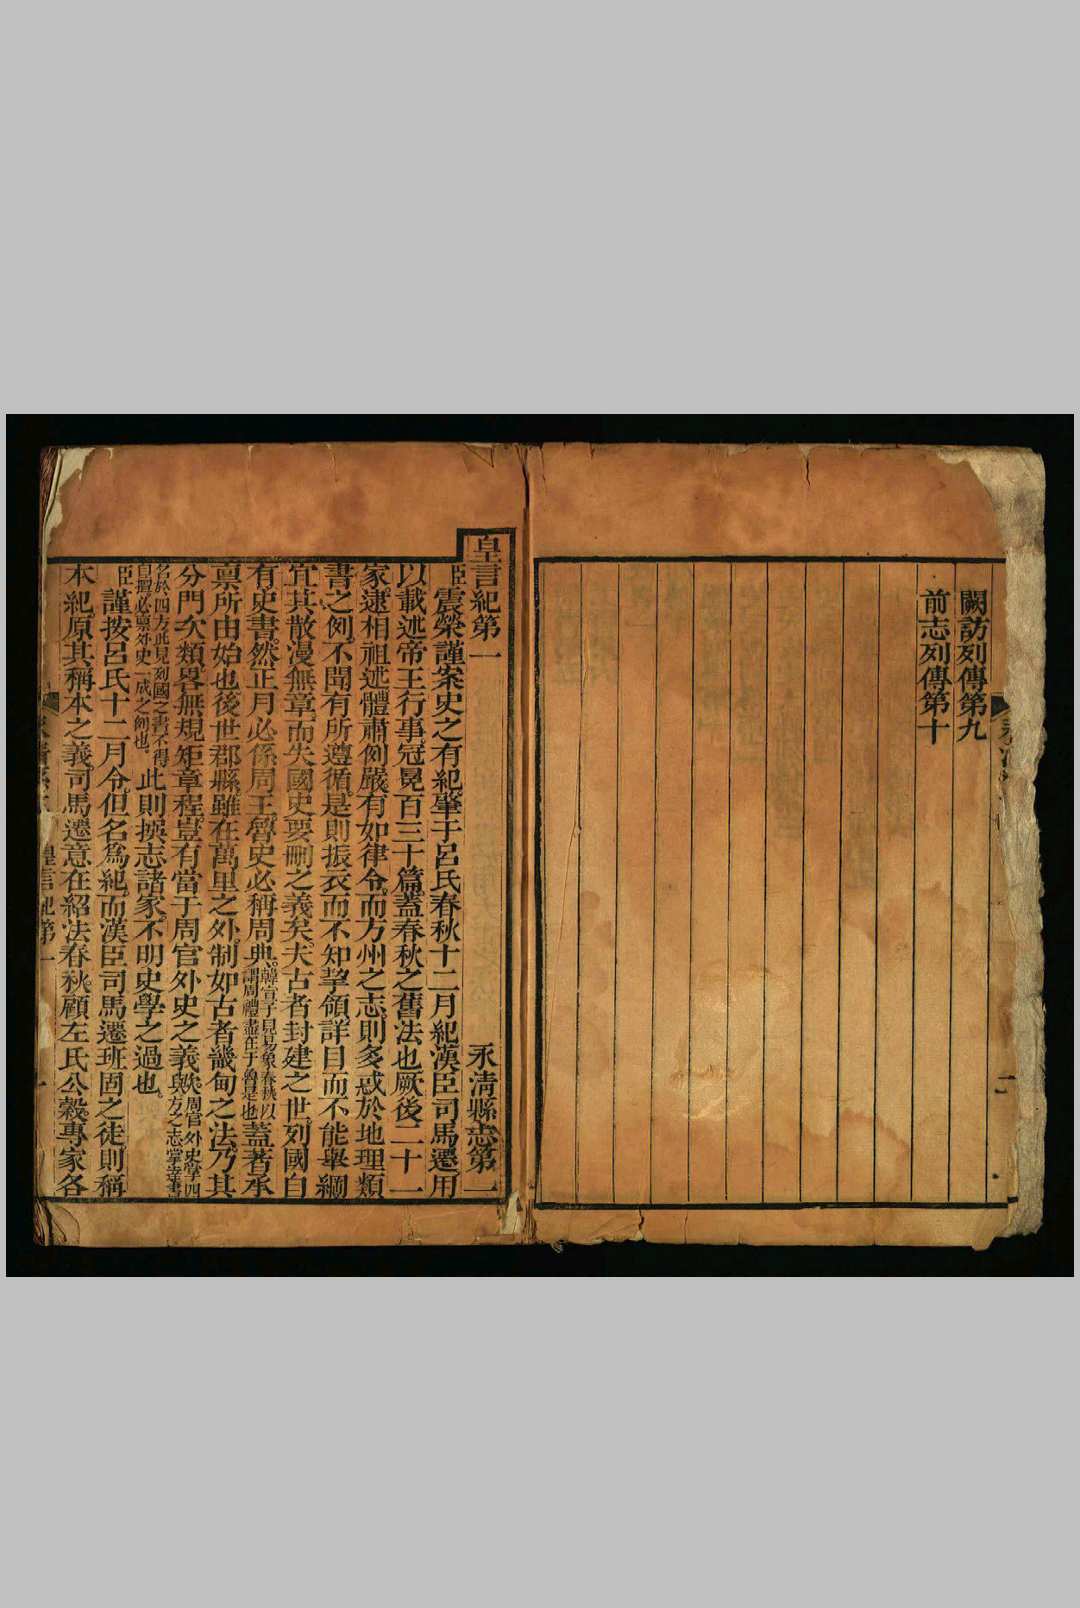 闕訪列傳第九
前志列傳第十
皇言紀第一　永清縣志第一
臣震榮謹案史之有紀肇于呂氏春秋十二月紀漢臣司馬遷用
以載述帝王行事冠冕百三十篇蓋春秋之舊法也厥後二十一
家逮相祖述體肅例嚴有如律令而方州之志則多惑於地理類
書之例不聞有所遵循是則振衣而不知挈領詳目而不能舉綱
宜其散漫無章而失國史要刪之義矣夫古者封建之世列國自
有史書然正月必係周王魯史必稱周典韓宣子見易象春秋以謂周禮盡在于魯是也蓋著承
禀所由始也後世郡縣雖在萬里之外制如古者畿甸之法乃其
分門次類畧無規矩章程豈有當于周官外史之義歟周官外史掌四方之志掌達書
名於四方此見列國之書不得自擅必禀外史一成之例也。此則撰志諸家不明史學之過也
臣謹按呂氏十二月令但名爲紀而漢臣司馬遷班固之徒則稱
本紀原其稱本之義司馬遷意在紹法春秋顧左氏公穀專家各
皇言紀第一